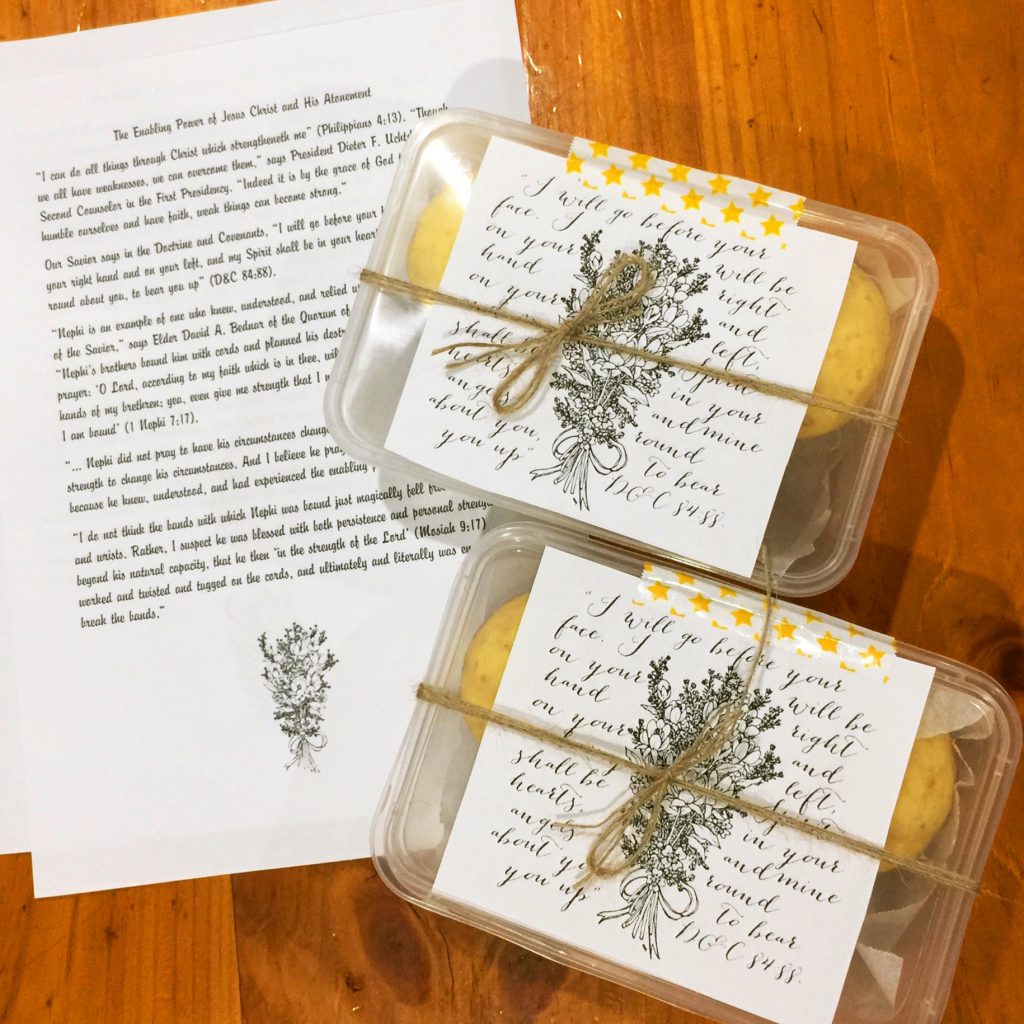 The Enabling Power of Jesus Christ and His Atonement
"I can do all things through Christ which strengtheneth me" (Philippians 4:13). "Though
we all have weaknesses, we can overcome them," says President Dieter F. Uchtd
Second Counselor in the First Presidency. "Indeed it is by the grace of God
humble ourselves and have faith, weak things can become strong."
Our Savior says in the Doctrine and Covenants, "I will go before your
your right hand and on your left, and my Spirit shall be in your hear
round about you, to bear you up" (D&C 84:88).
"Nephi is an example of one who knew, understood, and relied
of the Savior," says Elder David A. Bednar of the Quorum of
"Nephi's brothers bound him with cords and planned his dest
prayer: 'O Lord, according to my faith which is in thee, wil
hands of my brethren; yea, even give me strength that I
I am bound' (1 Nephi 7:17).
"... Nephi did not pray to have his circumstances chang
strength to change his circumstances. And I believe he pra
because he knew, understood, and had experienced the enabling
"I do not think the bands with which Nephi was bound just magically fell
and wrists. Rather, I suspect he was blessed with both persistence and personal streng
beyond his natural capacity, that he then 'in the strength of the Lord' (Mosiah 9:17)
worked and twisted and tugged on the cords, and ultimately and literally was en
break the bands."
"I will go before your
face. I will be
on your right
hand and
on your left,
Spirit
shall be in your
hearts, and mine
angels round
about you, to bear
you up" D&C 84:88.
"I will go before your
face. I will be
on your right
hand and
on your left,
Spirit
shall be in your
hearts, and mine
angels round
about you to bear
you up" D&C 84:88.